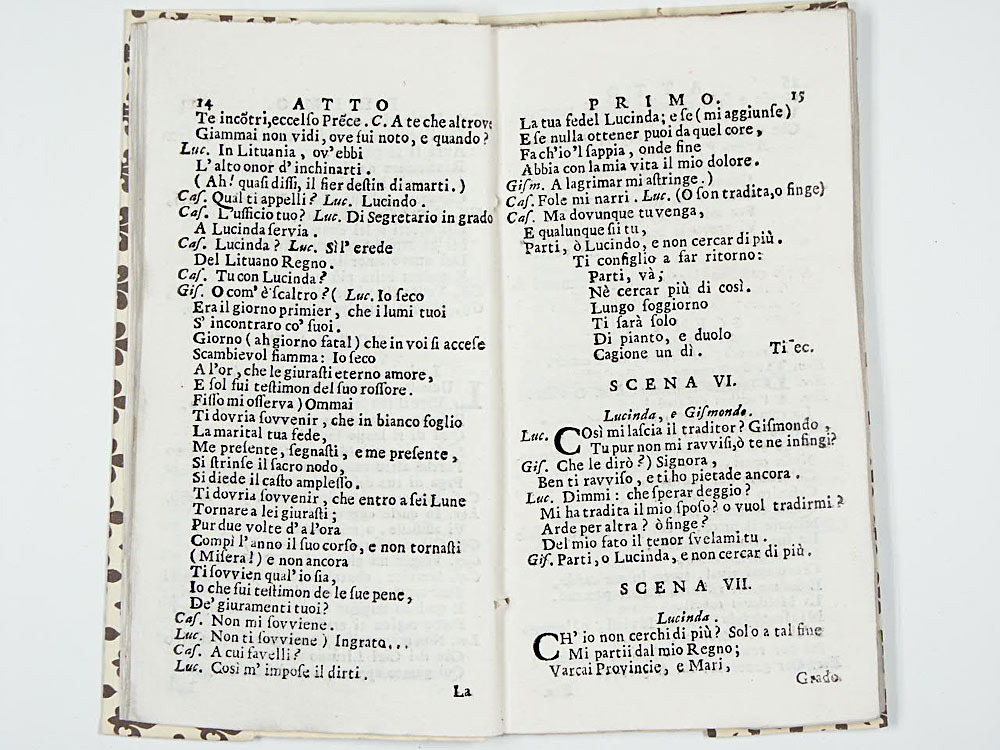 14 ATTO
Te incõtri, eccelſo Prẽce. C. A te che altrove
Giammai non vidi, ove fui noto, e quando?
Luc. In Lituania, ov'ebbi
L'alto onor d'inchinarti.
(Ah! quaſi diſſi, il fier deſtin di amarti.)
Caſ. Qual ti appelli? Luc. Lucindo.
Caſ. L'ufficio tuo? Luc. Di Segretario in grado
A Lucinda ſervia.
Caſ. Lucinda? Luc. Sì l'erede
Del Lituano Regno.
Caſ. Tu con Lucinda?
Giſ. O com'è ſcaltro?( Luc. Io ſeco
Era il giorno primier, che i lumi tuoi
S'incontraro co' ſuoi.
Giorno (ah giorno fatal) che in voi ſi acceſe
Scambievol fiamma: Io ſeco
A l'or, che le giuraſti eterno amore,
E ſol fui teſtimon del ſuo roſſore.
Fiſſo mi oſſerva) Ommai
Ti dovria ſovvenir, che in bianco foglio
La marital tua fede,
Me preſente, ſegnaſti, e me preſente,
Si ſtrinſe il ſacro nodo,
Si diede il caſto ampleſſo.
Ti dovria ſovvenir, che entro a ſei Lune
Tornare a lei giuraſti;
Pur due volte d'al'ora
Compì l'anno il ſuo corſo, e non tornaſti
(Miſera!) e non ancora
Ti ſovvien qual'io ſia,
Io che fui teſtimon de le ſue pene,
De' giuramenti tuoi?
Caſ. Non mi ſovviene.
Luc. Non ti ſovviene) Ingrato...
Caſ. A cui favelli?
Luc. Così m'impoſe il dirti.
La
PRIMO. 15
La tua fedel Lucinda; e ſe (mi aggiunſe)
E ſe nulla ottener puoi da quel core,
Fa ch'io'l ſappia, onde fine
Abbia con la mia vita il mio dolore.
Giſm. A lagrimar mi aſtringe.)
Caſ. Fole mi narri. Luc. (O ſon tradita, o finge)
Caſ. Ma dovunque tu venga,
E qualunque ſii tu,
Parti, ò Lucindo, e non cercar di più.
Ti conſiglio a far ritorno:
Parti, và;
Nè cercar più di così.
Lungo ſoggiorno
Ti ſarà ſolo
Di pianto, e duolo
Cagione un dì. Ti ec.
SCENA VI.
Lucinda, e Giſmondo.
Luc. COsì mi laſcia il traditor? Giſmondo,
Tu pur non mi ravviſi, ò te ne infingi?
Giſ. Che le dirò?) Signora,
Ben ti ravviſo, e ti ho pietade ancora.
Luc. Dimmi: che ſperar deggio?
Mi ha tradita il mio ſpoſo? o vuol tradirmi?
Arde per altra? ò finge?
Del mio fato il tenor ſvelami tu.
Giſ. Parti, o Lucinda, e non cercar di più.
SCENA VII.
Lucinda.
CH'io non cerchi di più? Solo a tal fine
Mi partii dal mio Regno;
Varcai Provincie, e Mari,
Grado.